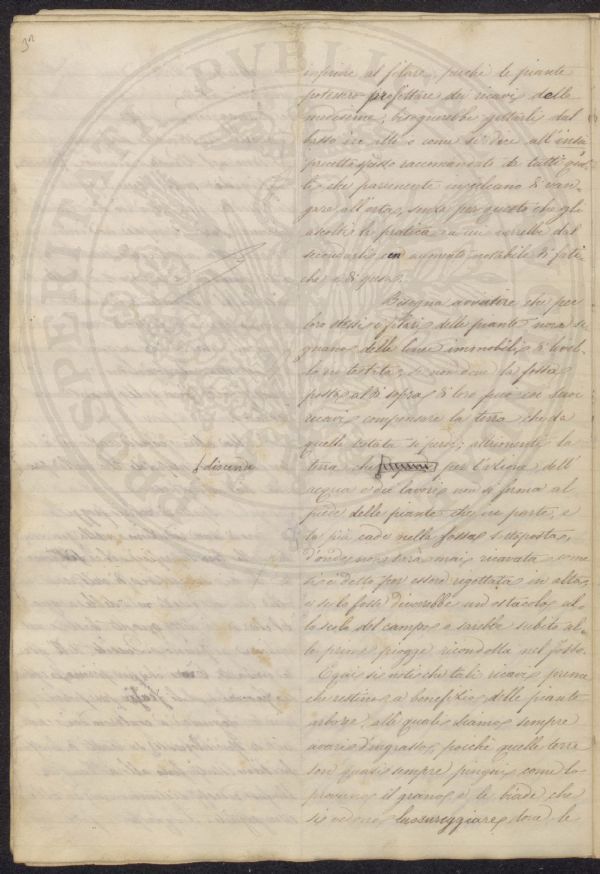 32
inferiore al filare, perchè le piante
potessero profittare dei ricavi delle
medesime, bisognerebbe gettarli dal
basso in alto o come si dice all'insù
precetto spesso raccomandato da tutti quel-
li che parimente inculcano di van-
gare all'erta, senza per questo che gli
ascolti la pratica a cui verrebbe dal
secondarli un aumento notabile di fati-
che e di spese.
Bisogna avvertire che per
loro stessi i filari delle piante non se-
gnano delle linee immobili di livel-
lo se la fossa
posta al di sopra di loro può coi suoi
ricavi compensare la terra che da
quella si perse; altrimenti la
discende
terra che per l'azione dell'
acqua e dei lavori non si ferma al
piede delle piante che in parte, e
la più cade nella fossa sottoposta,
d'onde non sarà mai ricavata come
si è detto per essere rigettata in alto,
e se lo fosse diverrebbe un ostacolo al-
lo scolo del campo e sarebbe subito al-
le prime piogge ricondotta nel fosso.
E qui si noti che tali ricavi prima
che restino a benefizio delle piante
arboree, alle quali siamo sempre
avari d'ingrasso, poichè quelle terre
son quasi sempre pingui, come lo
provano il grano e le biade che
si vedono lussureggiare, sora le